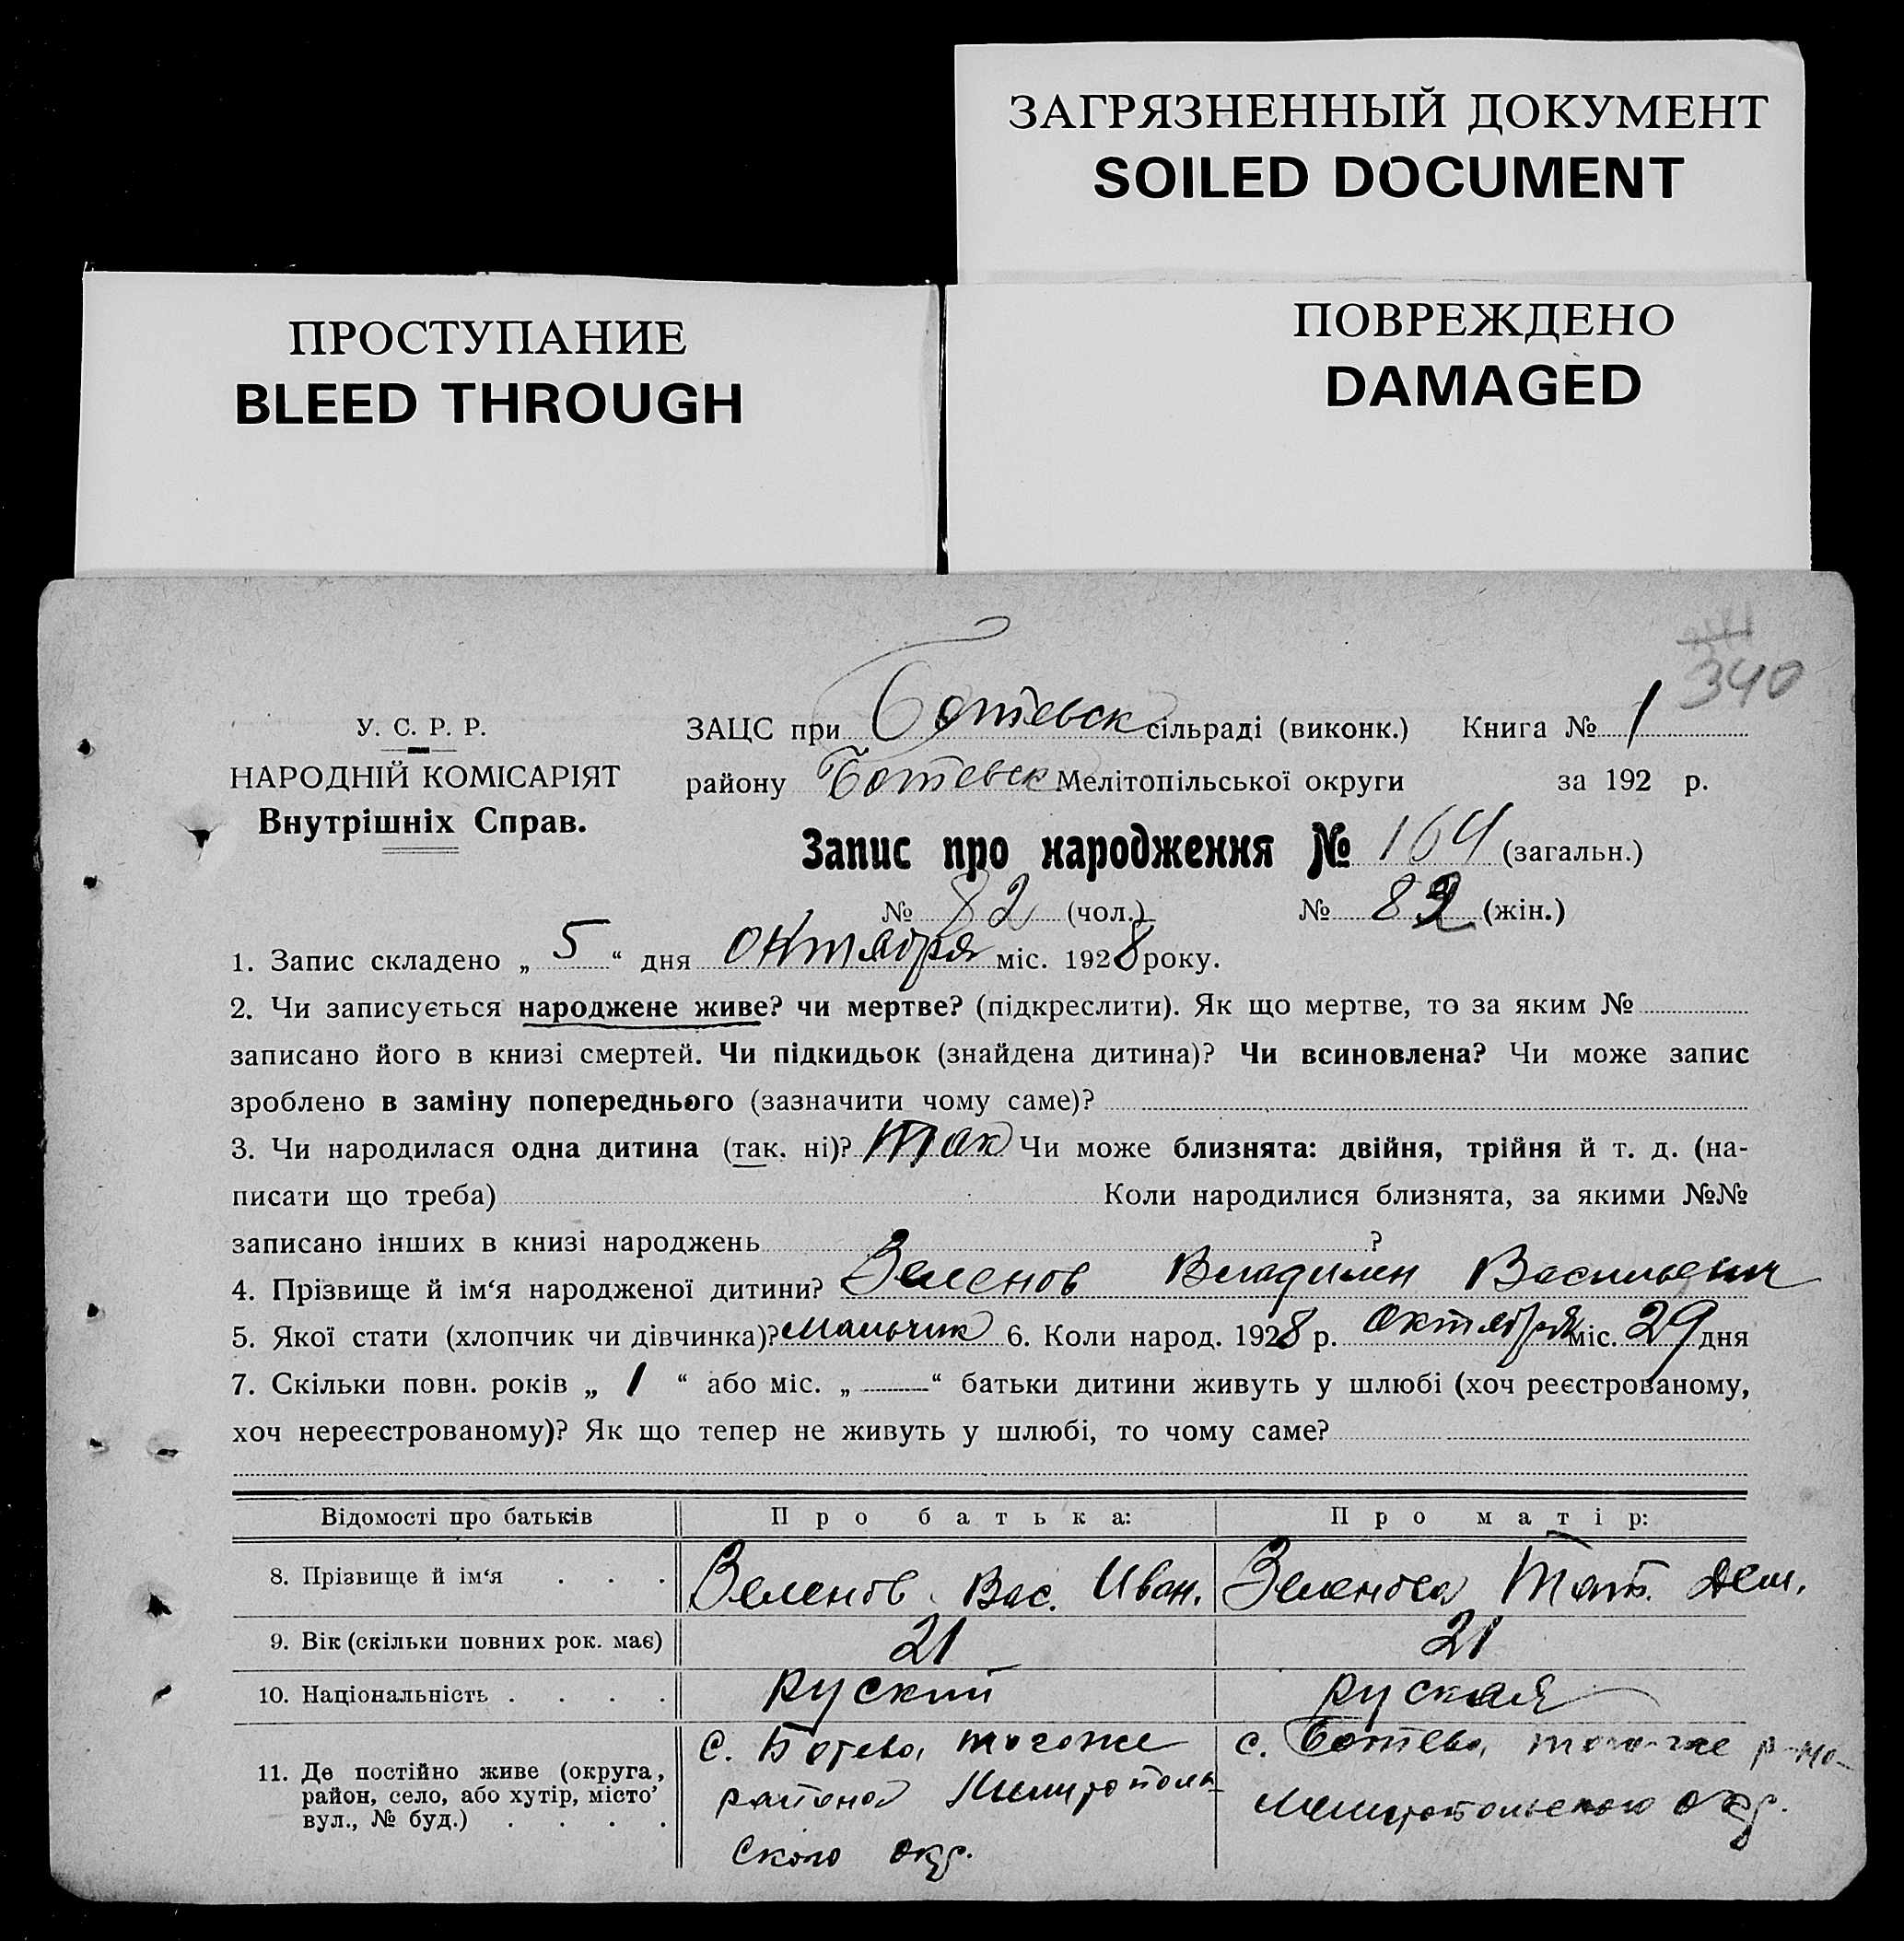 ЗАГРЯЗНЕННЫЙ ДОКУМЕНТ
SOILED DOCUMENT
ПРОСТУПАНИЕ
BLEED THROUGH
ПОВРЕЖДЕНО
DAMAGED
340
У. С. Р. Р.
НАРОДНІЙ КОМІСАРІЯТ
Внутрішніх Справ.
ЗАЦС при Ботевск сільраді (виконк.) Книга № 1
району Ботевск Мелітопільської округи за 192 р.
Запис про народження № 164 (загальн.)
№ 82 (чол.) № 82 (жін.)
1. Запис складено „ 5 “ дня октября міс. 1928 року.
2. Чи записується народжене живе? чи мертве? (підкреслити). Як що мертве, то за яким №
записано його в книзі смертей. Чи підкидьок (знайдена дитина)? Чи всиновлена? Чи може запис
зроблено в заміну попереднього (зазначити чому саме)?
3. Чи народилася одна дитина (так, ні)? Так Чи може близнята: двійня, трійня й т. д. (на-
писати що треба) Коли народилися близнята, за якими №№
записано інших в книзі народжень ?
4. Прізвище й ім‘я народженої дитини? Зеленов Владилен Васильевич
5. Якої стати (хлопчик чи дівчинка)? мальчик 6. Коли народ. 1928 р. октября міс. 29 дня
7. Скільки повн. років „ 1 “ або міс. „ — “ батьки дитини живуть у шлюбі (хоч реєстрованому,
хоч нереєстрованому)? Як що тепер не живуть у шлюбі, то чому саме?
Відомості про батьків Про батька: Про матір:
8. Прізвище й ім‘я . . . Зеленов Вас. Иван. Зеленова Тат. Дем.
9. Вік (скільки повних рок. має) 21 21
10. Національність . . . . руский руская
11. Де постійно живе (округа, район, село, або хутір, місто, вул., № буд.) . . . .
с. Ботево, тогоже
района Мелитополь
ского окр.
с. Ботево, того-же р-на
Мелитопольского окр.